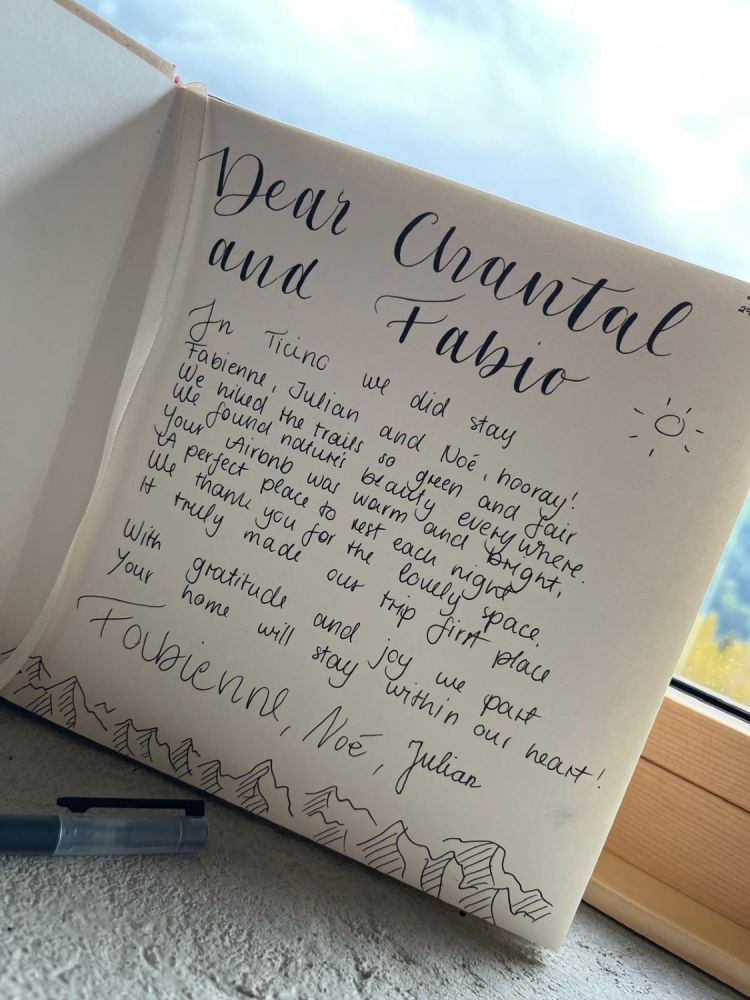 Dear Chantal
and Fabio
In Ticino we did stay
Fabienne, Julian and Noé, hooray!
We hiked the trails so green and fair
We found nature's beauty everywhere.
Your Airbnb was warm and bright,
A perfect place to rest each night
We thank you for the lovely space.
It truly made our trip first place
With gratitude and joy we part
Your home will stay within our heart!
Fabienne, Noé, Julian